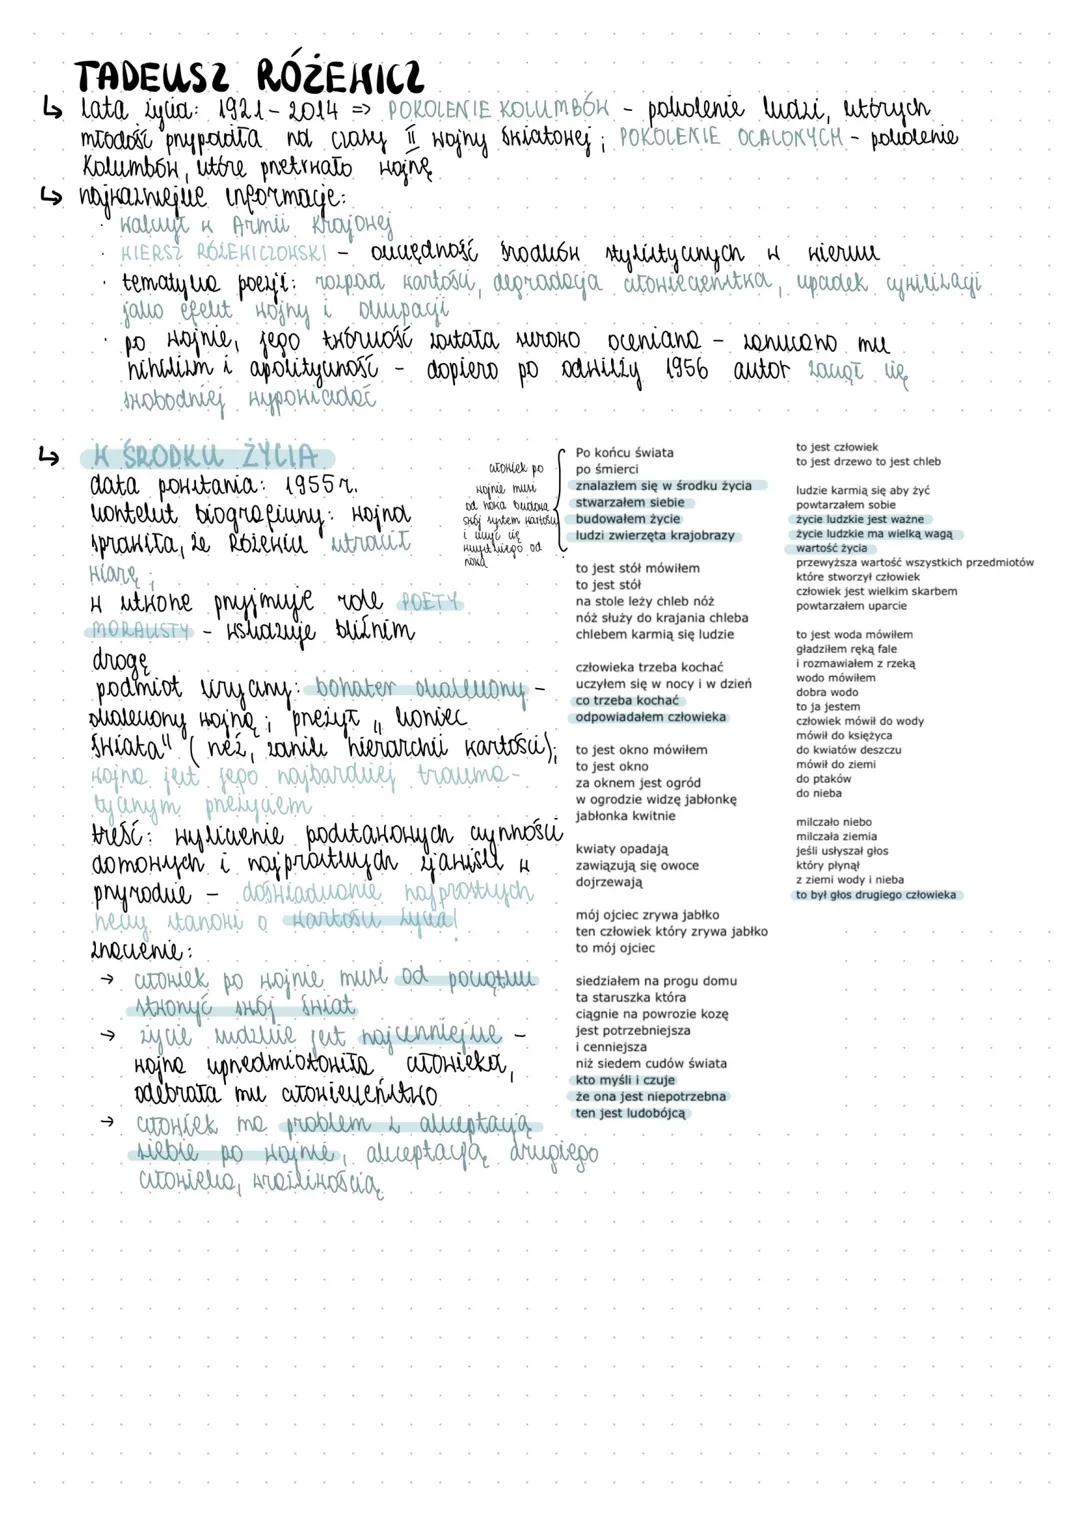 TADEUSZ RÓŻEWICZ
↳ lata życia: 1921-2014 => POKOLENIE KOLUMBÓW - pokolenie ludzi, których
młodość przypadła na czasy II wojny światowej; POKOLENIE OCALONYCH - pokolenie
Kolumbów, które przetrwało wojnę
↳ najważniejsze informacje:
· walczył w Armii Krajowej
· WIERSZ RÓŻEWICZOWSKI - oszczędność środków stylistycznych w wierszu
· tematyka poezji: rozpad wartości, degradacja człowieczeństwa, upadek cywilizacji
jako efekt wojny i okupacji
· po wojnie, jego twórczość została surowo oceniana - zarzucano mu
nihilizm i apolityczność - dopiero po odwilży 1956 autor zaczął się
swobodniej wypowiadać
↳ W ŚRODKU ŻYCIA
data powstania: 1955 r.
kontekst biograficzny: wojna
sprawiła, że Różewicz utracił
wiarę;
w utworze przyjmuje rolę POETY
MORALISTY - wskazuje bliźnim
drogę
podmiot liryczny: bohater okaleczony -
okaleczony wojną; przeżył „koniec
świata" (rzeź, zanik hierarchii wartości);
wojna jest jego najbardziej trauma-
tycznym przeżyciem
treść: wyliczenie podstawowych czynności
domowych i najprostszych zjawisk w
przyrodzie - doświadczanie najprostszych
rzeczy stanowi o wartości życia!
znaczenie:
→ człowiek po wojnie musi od początku
stworzyć swój świat
→ życie ludzkie jest najcenniejsze -
wojna uprzedmiotowiła człowieka,
odebrała mu człowieczeństwo
→ człowiek ma problem z akceptacją
siebie po wojnie, akceptacją drugiego
człowieka, wrażliwością
człowiek po
wojnie musi
od nowa budować
swój system wartości
i uczyć się
wszystkiego od
nowa
Po końcu świata
po śmierci
znalazłem się w środku życia
stwarzałem siebie
budowałem życie
ludzi zwierzęta krajobrazy
to jest stół mówiłem
to jest stół
na stole leży chleb nóż
nóż służy do krajania chleba
chlebem karmią się ludzie
człowieka trzeba kochać
uczyłem się w nocy i w dzień
co trzeba kochać
odpowiadałem człowieka
to jest okno mówiłem
to jest okno
za oknem jest ogród
w ogrodzie widzę jabłonkę
jabłonka kwitnie
kwiaty opadają
zawiązują się owoce
dojrzewają
mój ojciec zrywa jabłko
ten człowiek który zrywa jabłko
to mój ojciec
siedziałem na progu domu
ta staruszka która
ciągnie na powrozie kozę
jest potrzebniejsza
i cenniejsza
niż siedem cudów świata
kto myśli i czuje
że ona jest niepotrzebna
ten jest ludobójcą
to jest człowiek
to jest drzewo to jest chleb
ludzie karmią się aby żyć
powtarzałem sobie
życie ludzkie jest ważne
życie ludzkie ma wielką wagę
wartość życia
przewyższa wartość wszystkich przedmiotów
które stworzył człowiek
człowiek jest wielkim skarbem
powtarzałem uparcie
to jest woda mówiłem
gładziłem ręką fale
i rozmawiałem z rzeką
wodo mówiłem
dobra wodo
to ja jestem
człowiek mówił do wody
mówił do księżyca
do kwiatów deszczu
mówił do ziemi
do ptaków
do nieba
milczało niebo
milczała ziemia
jeśli usłyszał głos
który płynął
z ziemi wody i nieba
to był głos drugiego człowieka